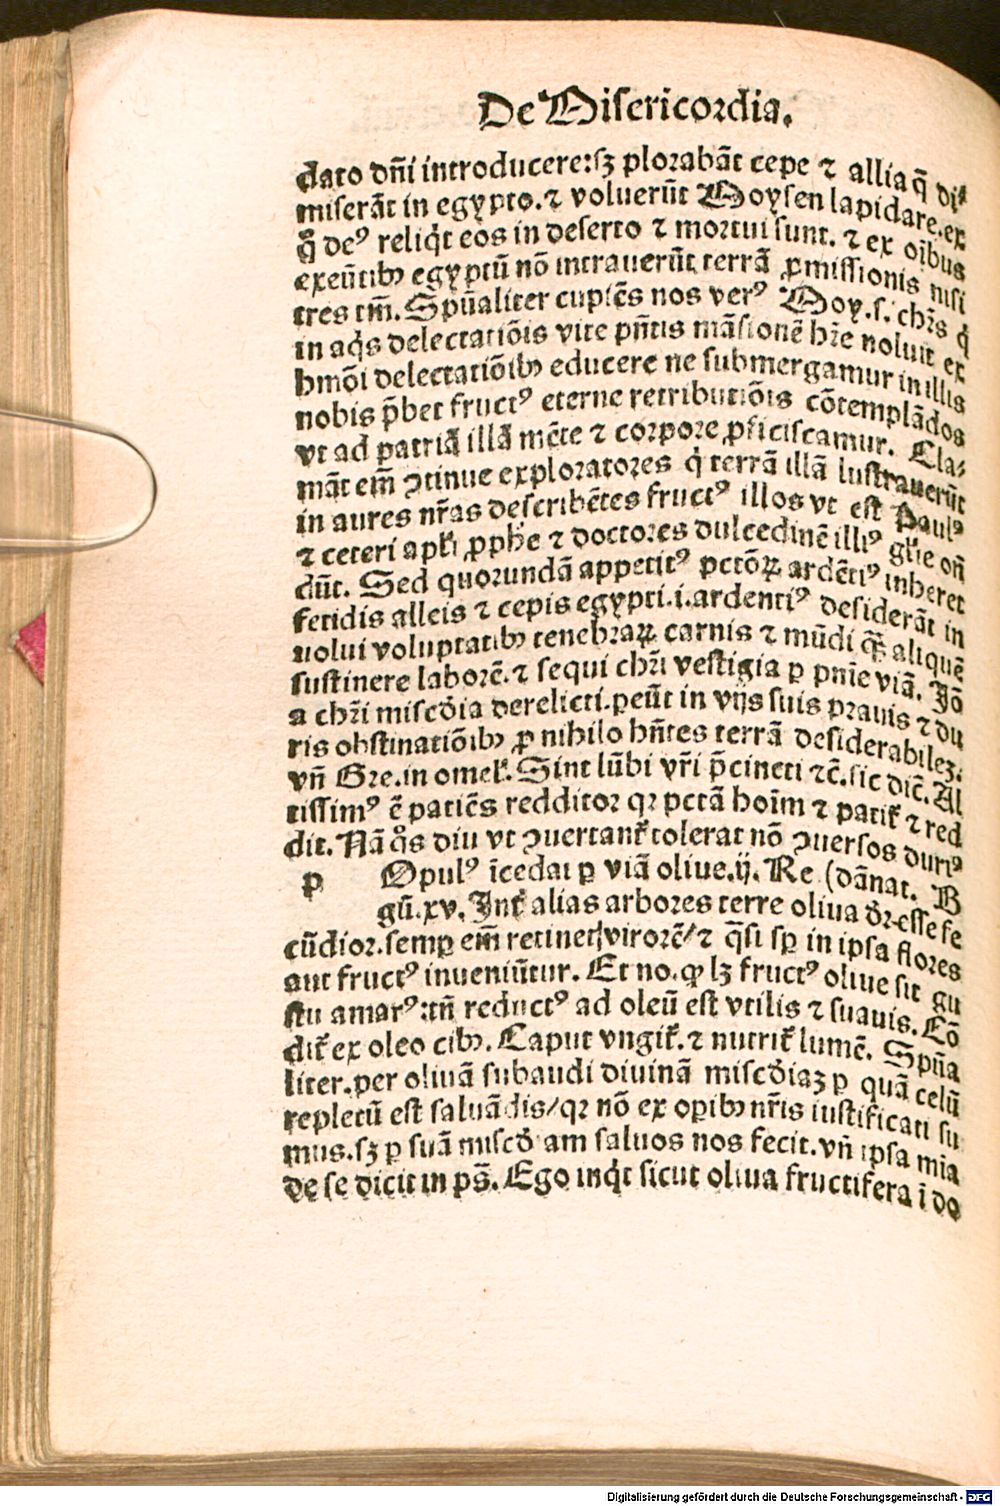 De Misericordia.
dato dñi introducere:sꝫ plorabãt cepe ⁊ allia q̃ di⸗
miserãt in egypto.⁊ voluerũt Moysen lapidare.ex
q̊ deꝰ reliq̇t eos in deserto ⁊ mortui sunt. ⁊ ex oĩbus
exeũtibꝰ egyptũ nõ intrauerũt terrã ꝓmissionis nisi
tres tm̃. Spũaliter cupiẽs nos verꝰ Moy.s. chr̃s q̇
in aq̇s delectatiõis vite pñtis mãsionẽ hr̃e noluit ex
hmõi delectatiõibꝰ educere ne submergamur in illis
nobis p̃bet fructꝰ eterne retributiõis cõtemplãdos
vt ad patriã illã mẽte ⁊ corpore ꝓficiscamur. Cla⸗
mãt em̃ ꝯtinue exploratores q̇ terrã illã lustrauerũt
in aures nr̃as describẽtes fructꝰ illos vt est Paulꝰ
⁊ ceteri apl̃i ꝓphe ⁊ doctores dulcedinẽ illiꝰ gl̃ie oñ
dũt. Sed quorundã appetitꝰ pctõꝝ ardẽtiꝰ inheret
fetidis alleis ⁊ cepis egypti.i.ardentiꝰ desiderãt in
uolui voluptatibꝰ tenebraꝝ carnis ⁊ mũdi q̃ꝫ aliquẽ
sustinere laborẽ.⁊ sequi chr̃i vestigia ꝑ pñie viã. Jõ
a chr̃i miscd̃ia derelicti.peũt in vijs suis prauis ⁊ du
ris obstinatiõibꝰ ꝓ nihilo hñtes terrã desiderabilez.
vñ Gre.in omel̃. Sint lũbi vr̃i p̃cincti ⁊c̃.sic dic̃. Al
tissimꝰ ẽ patiẽs redditor qꝛ pctã hoĩm ⁊ patit̃ ⁊ red
dit. Nã q̊s diu vt ꝯuertant̃ tolerat nõ ꝯuersos duriꝰ
p Opulꝰ ĩcedat ꝑ viã oliue.ij. Re (dãnat. B
gũ.xv. Int̃ alias arbores terre oliua dr̃.esse fe
cũdior.semꝑ em̃ retinet virorẽ/⁊ q̃si sꝑ in ipsa flores
aut fructꝰ inueniũtur. Et no.ꝙ lꝫ fructꝰ oliue sit gu
stu amarꝰ:tñ reductꝰ ad oleũ est vtilis ⁊ suauis. Cõ
dit̃ ex oleo cibꝰ. Caput vngit̃.⁊ nutrit̃ lumẽ. Spũa
liter.per oliuã subaudi diuinã miscd̃iaꝫ ꝑ quã celũ
repletũ est saluãdis/qꝛ nõ ex opibꝰ nr̃is iustificati su
mus.sꝫ ꝑ suã miscd̃iam saluos nos fecit.vñ ipsa mia
de se dicit in ps̃. Ego inq̇t sicut oliua fructifera ĩ do
Digitalisierung gefördert durch die Deutsche Forschungsgemeinschaft - DFG